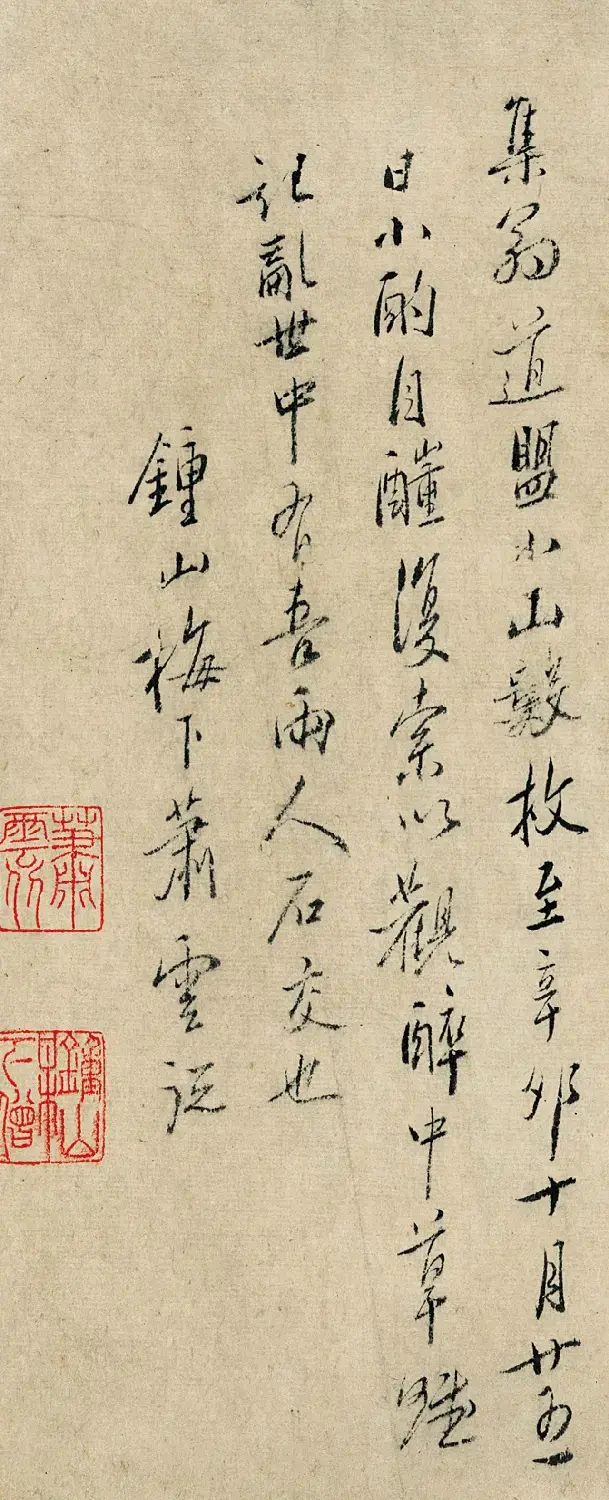 集翁道盟小山數枚至辛卯十月廿五
日小酌自醺復索以觀醉中草
記亂世中有吾兩人石交也
鍾山梅下蕭雲從
蕭雲從
鍾山梅下僧